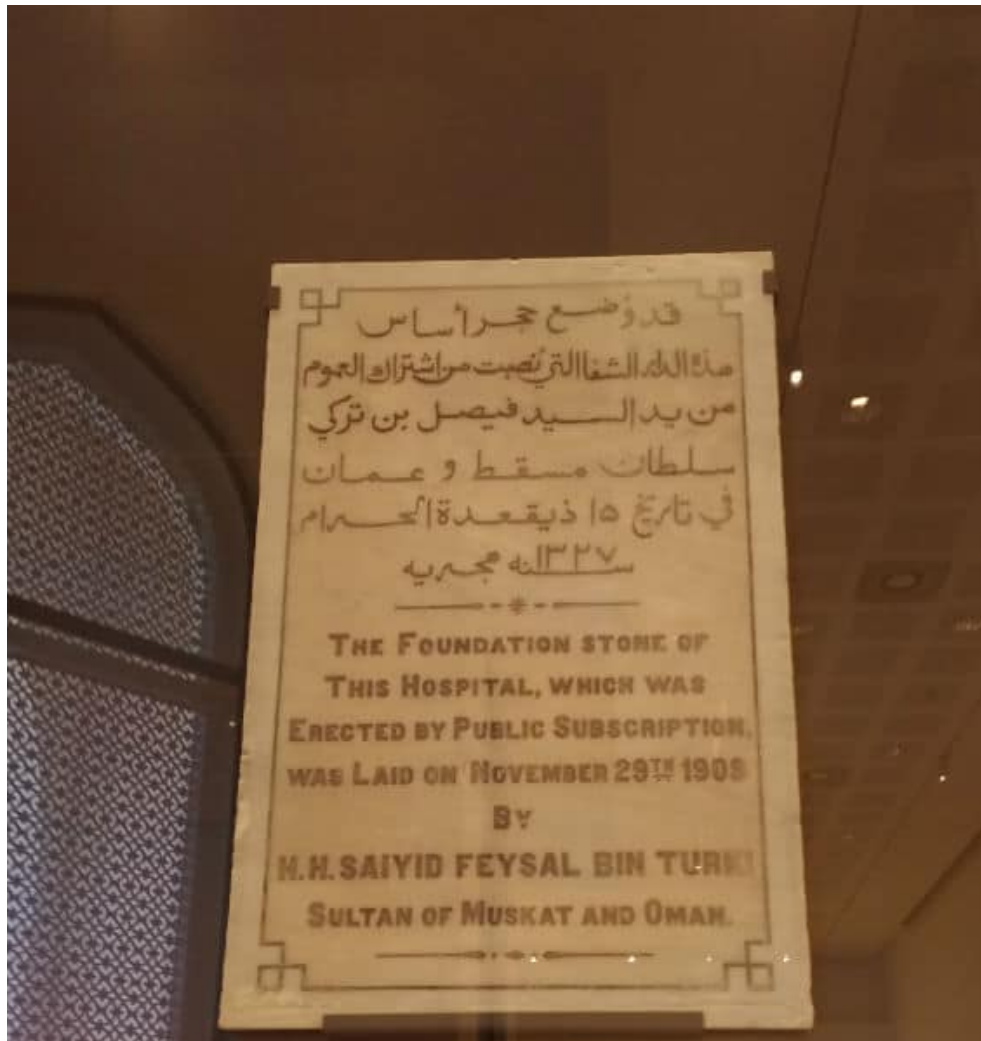 قد وُضع حجر أساس
هذه الدار الشفا التي نُصبت من اشتراك العموم
من يد السيد فيصل بن تركي
سلطان مسقط و عمان
في تاريخ ١٥ ذيقعدة الحرام
سنه ١٣٢٧ هجريه
THE FOUNDATION STONE OF
THIS HOSPITAL, WHICH WAS
ERECTED BY PUBLIC SUBSCRIPTION,
WAS LAID ON NOVEMBER 29TH 1909
BY
H.H. SAIYID FEYSAL BIN TURKI
SULTAN OF MUSKAT AND OMAN.